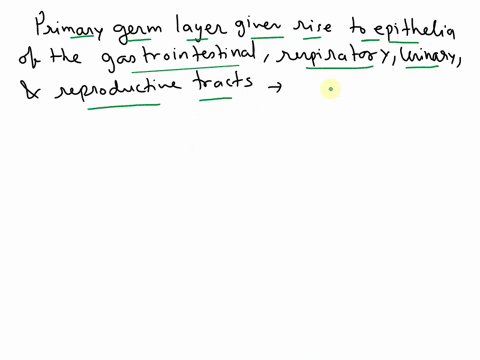 Primary germ layer given rise to epithelia
of the gastrointestinal, respiratory, Urinary,
& reproductive tracts →